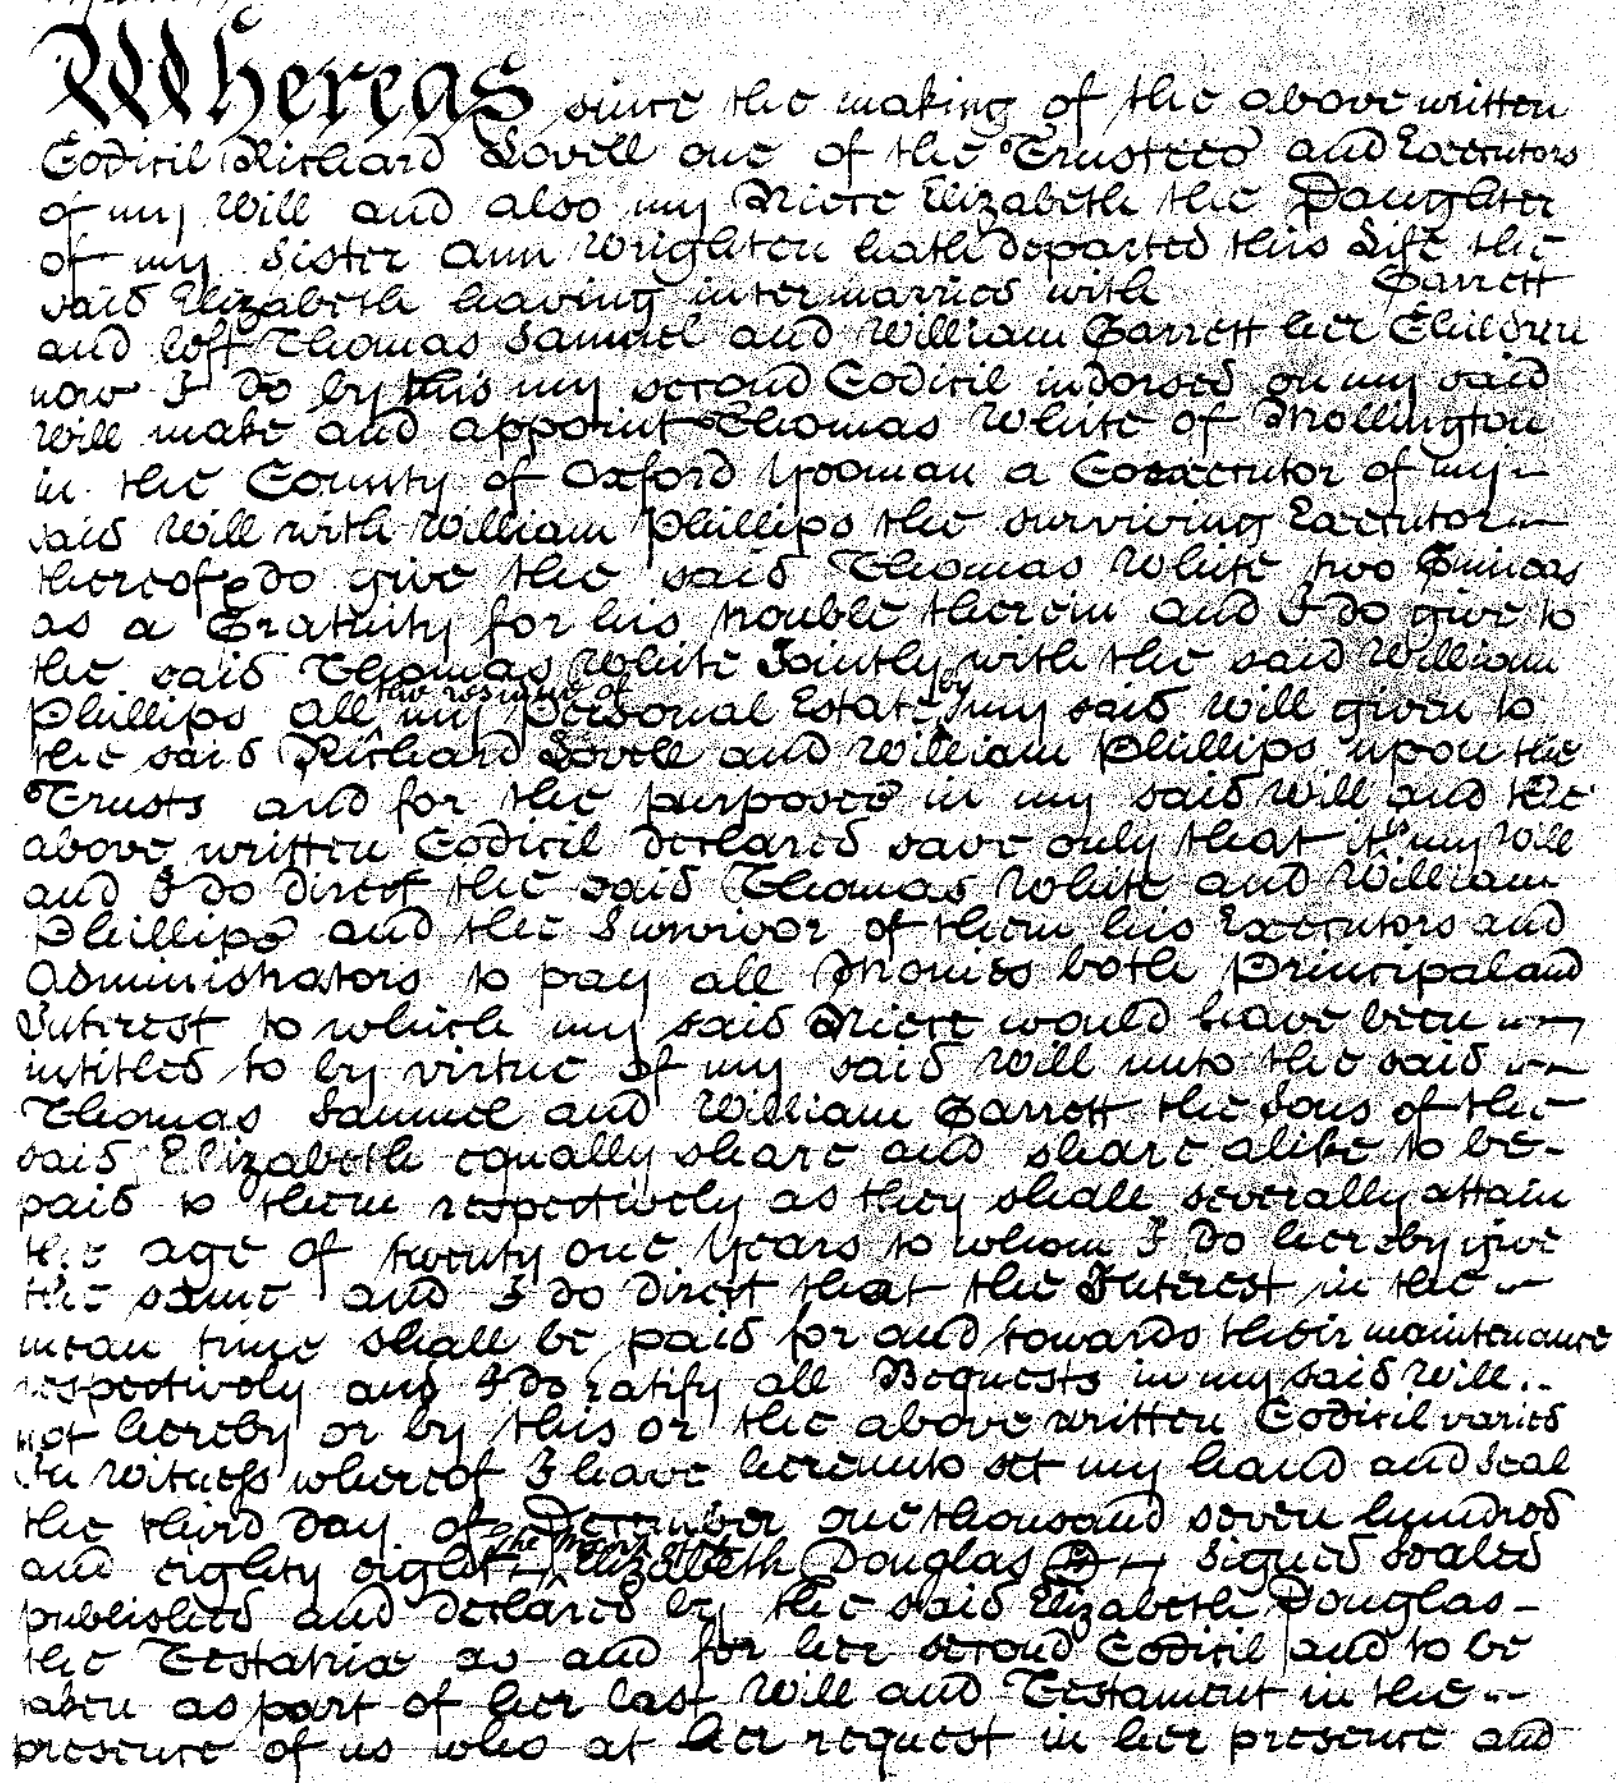 Whereas since the making of the above written
Codicil Richard Lovell one of the Trustees and Executors
of my Will and also my Niece Elizabeth the Daughter
of my Sister Ann Wrighton hath departed this Life the
said Elizabeth having intermarried with Garrett
and left Thomas Samuel and William Garrett her Children
now I do by this my second Codicil indorsed on my said
Will make and appoint Thomas White of Mollington
in the County of Oxford Yeoman a Coexecutor of my
said Will with William Phillips the surviving Executor
thereof do give the said Thomas White two Guineas
as a Gratuity for his trouble therein and I do give to
the said Thomas White Jointly with the said William
Phillips all the residue of my personal Estate by my said Will given to
the said Richard Lovell and William Phillips upon the
Trusts and for the purposes in my said Will and the
above written Codicil declared save only that it is my Will
and I do direct the said Thomas White and William
Phillips and the Survivor of them his Executors and
Administrators to pay all Monies both Principal and
Interest to which my said Niece would have been
intitled to by virtue of my said Will unto the said
Thomas Samuel and William Garrett the Sons of the
said Elizabeth equally share and share alike to be
paid to them respectively as they shall severally attain
the age of twenty one Years to whom I do hereby give
the same and I do direct that the Interest in the
mean time shall be paid for and towards their maintenance
respectively and I do ratify all Bequests in my said Will
not hereby or by this or the above written Codicil varied
In Witness whereof I have hereunto set my hand and Seal
the third Day of December one thousand seven hundred
and eighty eight The Mark of Elizabeth Douglas Signed sealed
published and declared by the said Elizabeth Douglas
the Testatrix as and for her second Codicil and to be
taken as part of her last Will and Testament in the
presence of us who at her request in her presence and